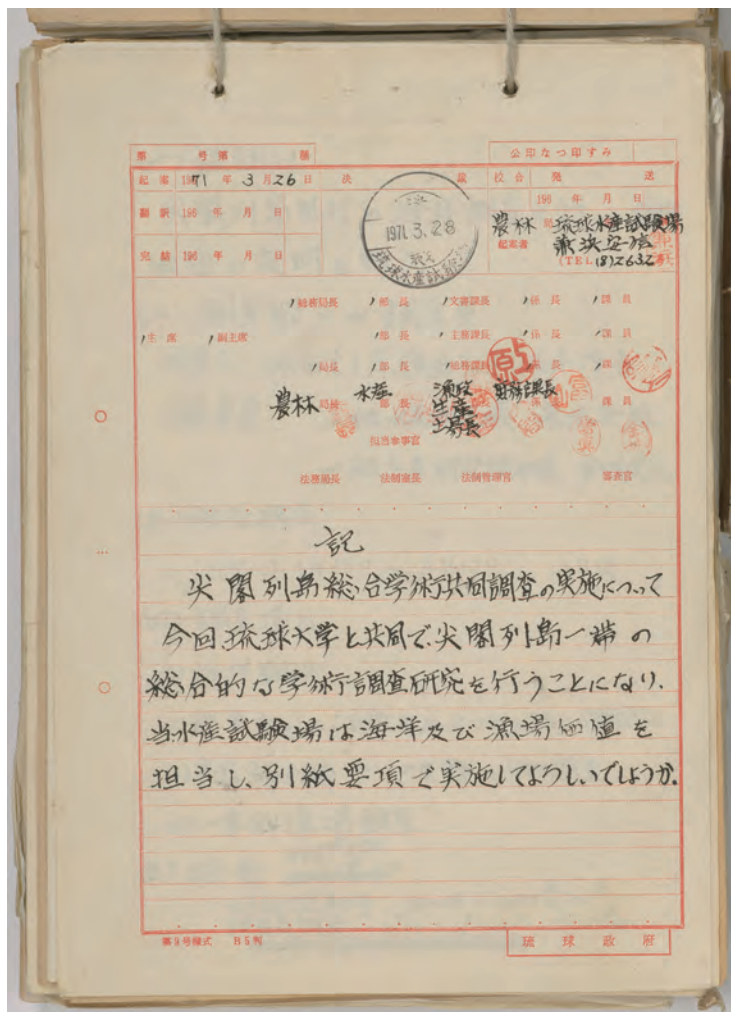 第 号 第 種
公印なつ印すみ
起案 1971年3月26日 決 裁 校合 発 送
196 年 月 日
翻訳 196 年 月 日
1971. 3. 28
琉球水産試験場
農林 琉球水産試験場
起案者
(TEL (8)2632
完結 196 年 月 日
総務局長 部長 文書課長 係長 課員
主席 副主席 部長 主務課長 係長 課員
局長 部長 総務課長 係長 課員
農林局長 水産部長 漁政 財務課長 課員
生産
土場長
担当参事官
法務局長 法制室長 法制管理官 審査官
記
尖閣列島総合学術共同調査の実施について
今回琉球大学と共同で尖閣列島一帯の
総合的な学術調査研究を行うことになり、
当水産試験場は海洋及び漁場価値を
担当し、別紙要項で実施してよろしいでしょうか。
第9号様式 B5判
琉球政府